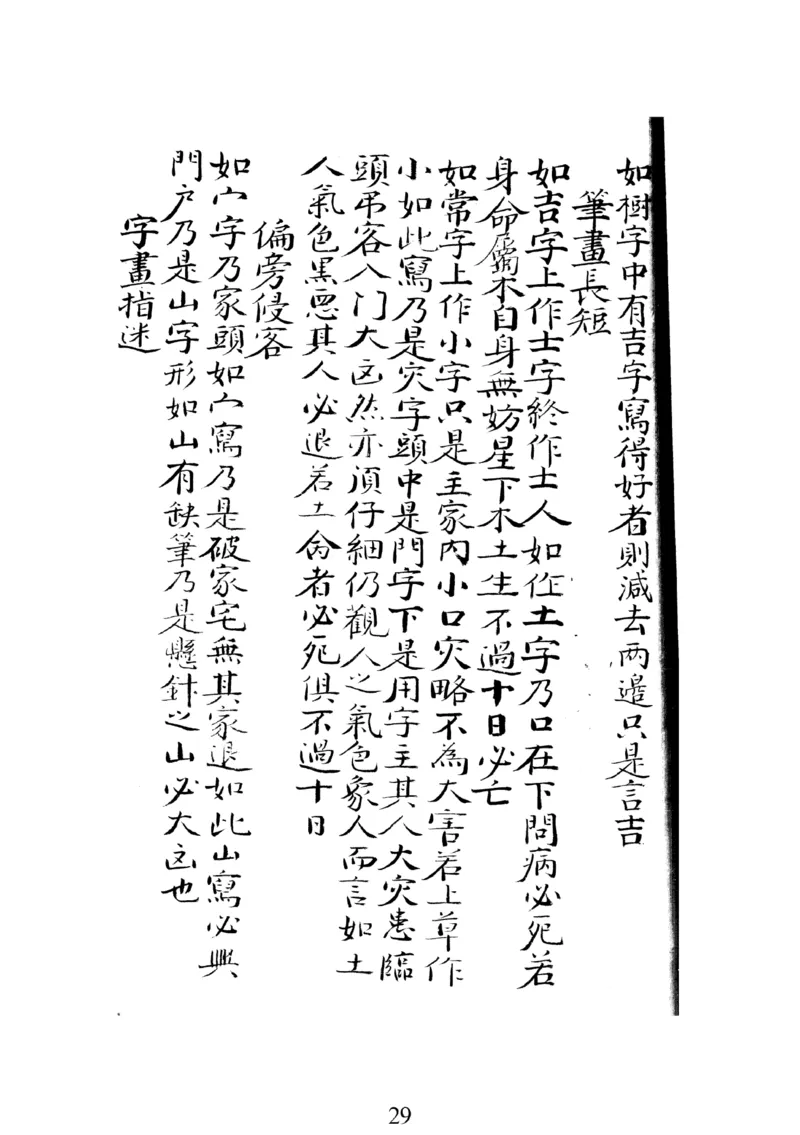 如樹字中有吉字寫得好者則減去两邉只是言吉
筆畫長短
如吉字上作士字終作士人如作土字乃口在下問病必死若
身命屬木自身無妨星下木土生不過十日必亡
如常字上作小字只是主家内小口灾略不為大害若上草作
小如此寫乃是灾字頭中是門字下是用字主其人大灾患臨
頭吊客入门大凶然亦須仔細仍觀人之氣色象人而言如土
人氣色黑惡其人必退若土命者必死俱不過十日
偏旁侵客
如宀字乃家頭如宀寫乃是破家宅無其家退如此山寫必興
門户乃是山字形如山有缺筆乃是懸針之山必大凶也
字畫指迷
29